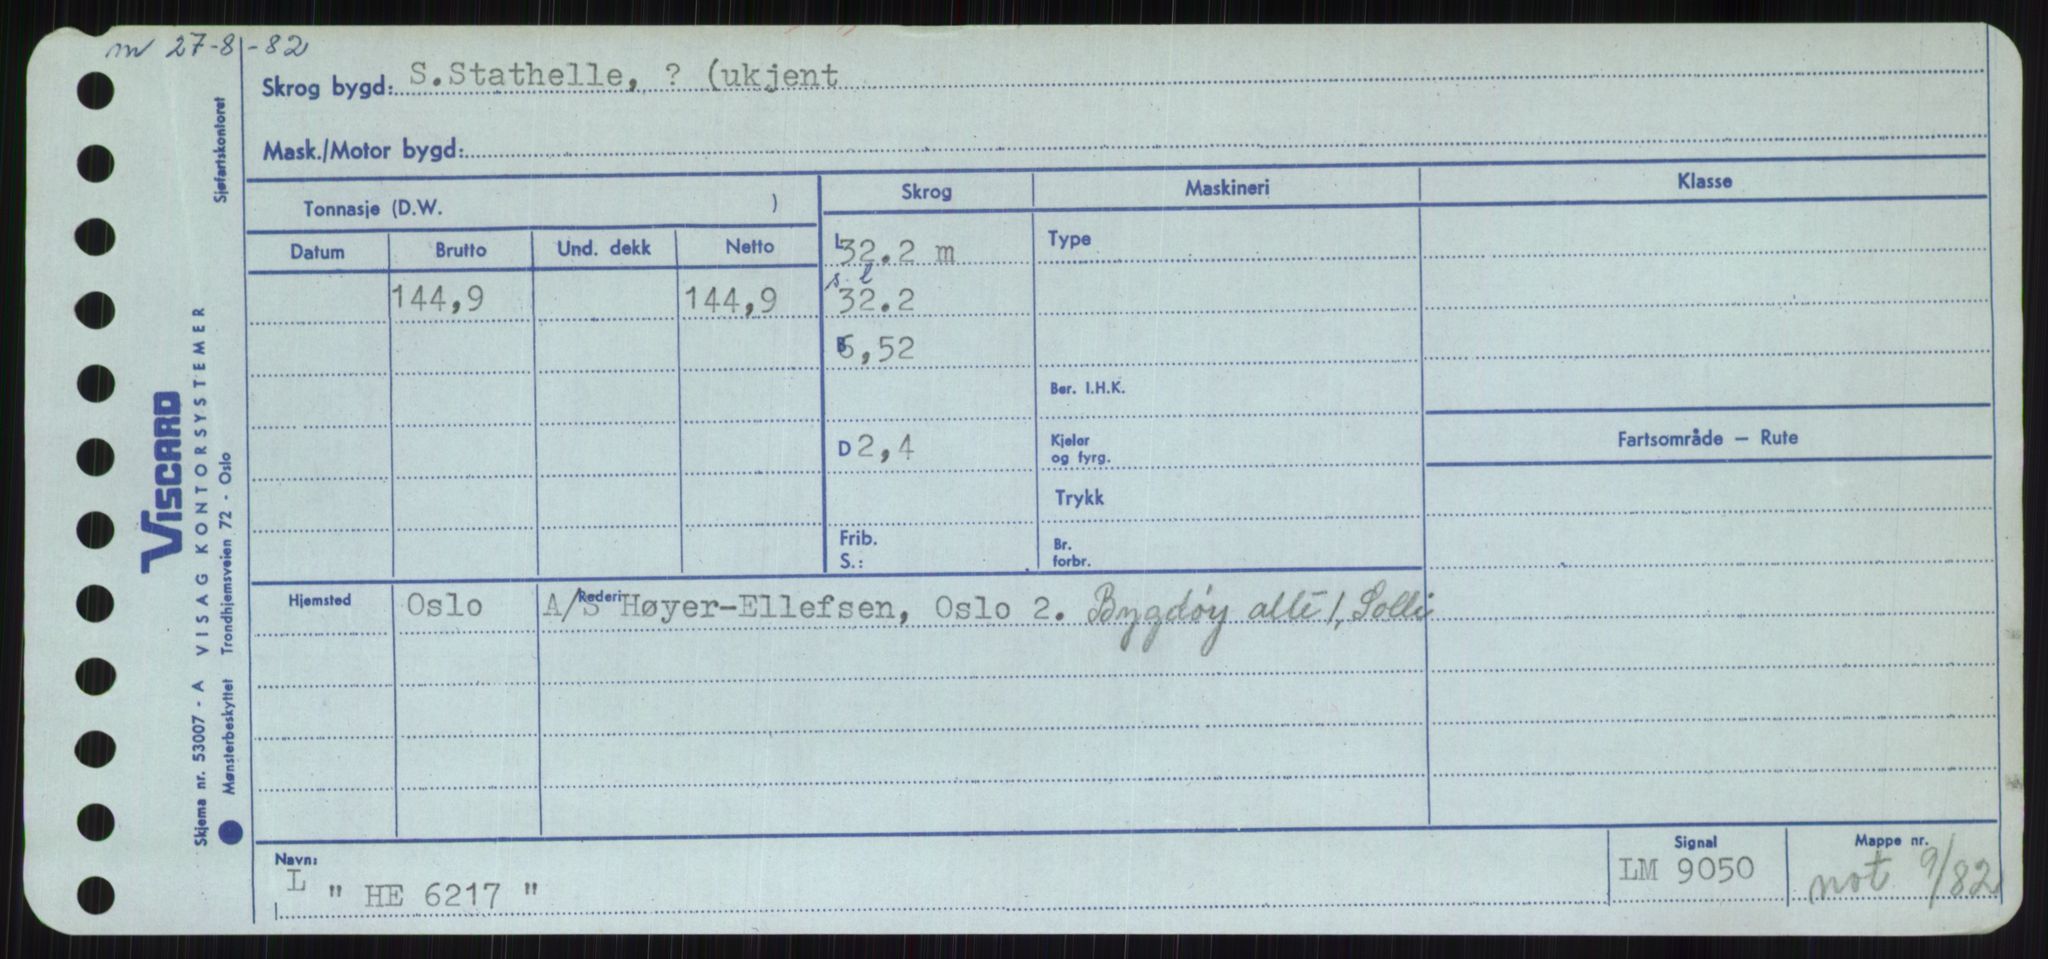 nv 27-8-82
Skrog bygd: S.Stathelle, ? (ukjent
Mask./Motor bygd:
Tonnasje (D.W. )
Skrog
Maskineri
Klasse
Datum
Brutto
Und. dekk
Netto
L 32.2 m
Type
144,9
144,9
s l
32.2
B 6,52
Ber. I.H.K.
Fartsområde — Rute
D 2,4
Kjeler
og fyrg.
Trykk
Frib.
S.:
Br.
forbr.
Hjemsted
Oslo
Rederi
A/S Høyer-Ellefsen, Oslo 2. Bygdøy allé 1, Solli
Navn:
L " HE 6217 "
Signal
LM 9050
Mappe nr.
not 9/82
Sjøfartskontoret
VISCARD
VISAG KONTORSYSTEMER
Trondhjemsveien 72 - Oslo
Skjema nr. 53007 - A
Mønsterbeskyttet